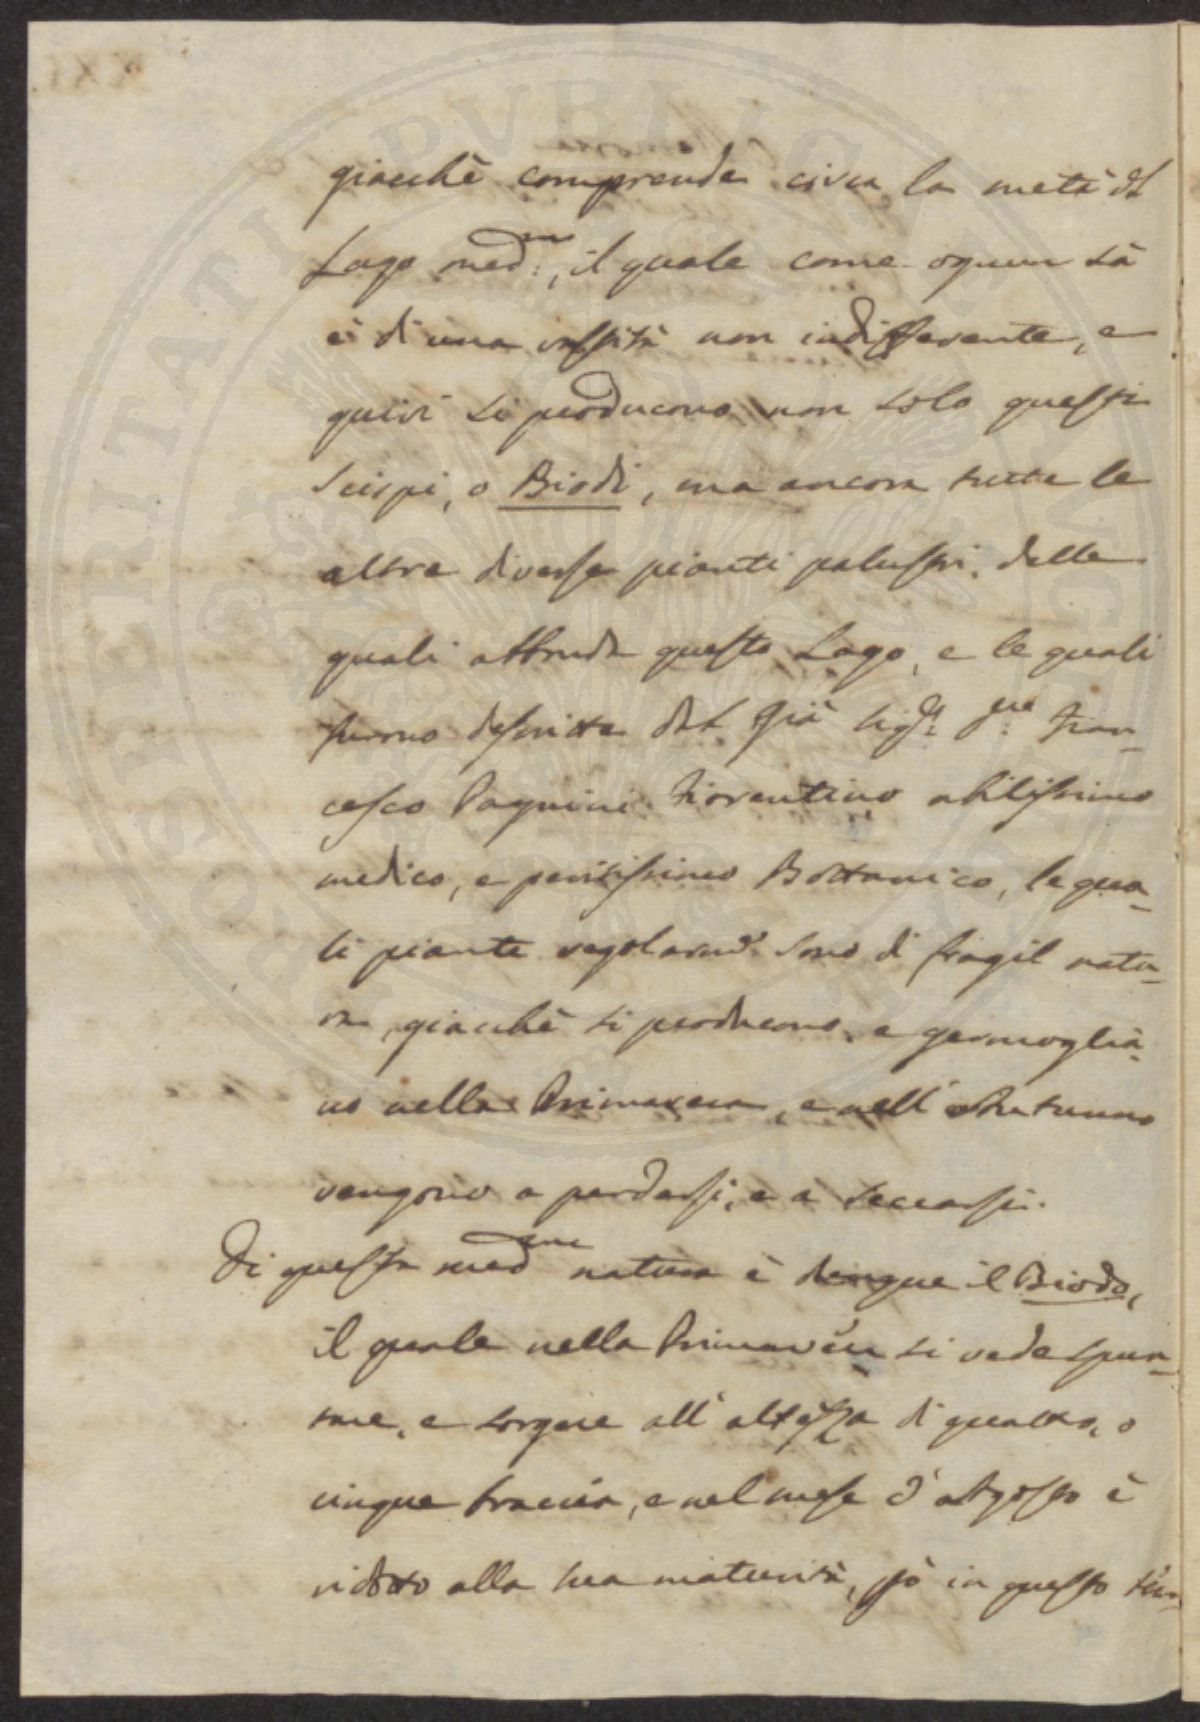 giacchè comprende circa la metà del
Lago med.mo, il quale come ognun sà
è di una vastità non indifferente, e
quivi si producono non solo questi
Scirpi, o Biodi, ma ancora tutte le
altre diverse pianti palustri, delle
quali abbonda questo Lago, e le quali
furno descritte dal già Sig.r Fran-
cesco Pagnini Fiorentino abilissimo
medico, e peritissimo Bottanico, le qua-
li piante regolarm.e sono di fragil natu-
ra, giacchè si producono, e germoglia-
no nella Primavera, e nell'Autunno
vengono a perdersi, e a seccarsi.
Di questa med.ma natura è dunque il Biodo,
il quale nella Primavera si vede spun-
tare, e sorgere all'altezza di quattro, o
cinque braccia, e nel mese d'Agosto è
ridotto alla sua maturità, però in questo tem-
PROSPERITATI PVBLICAE AVGENDAE